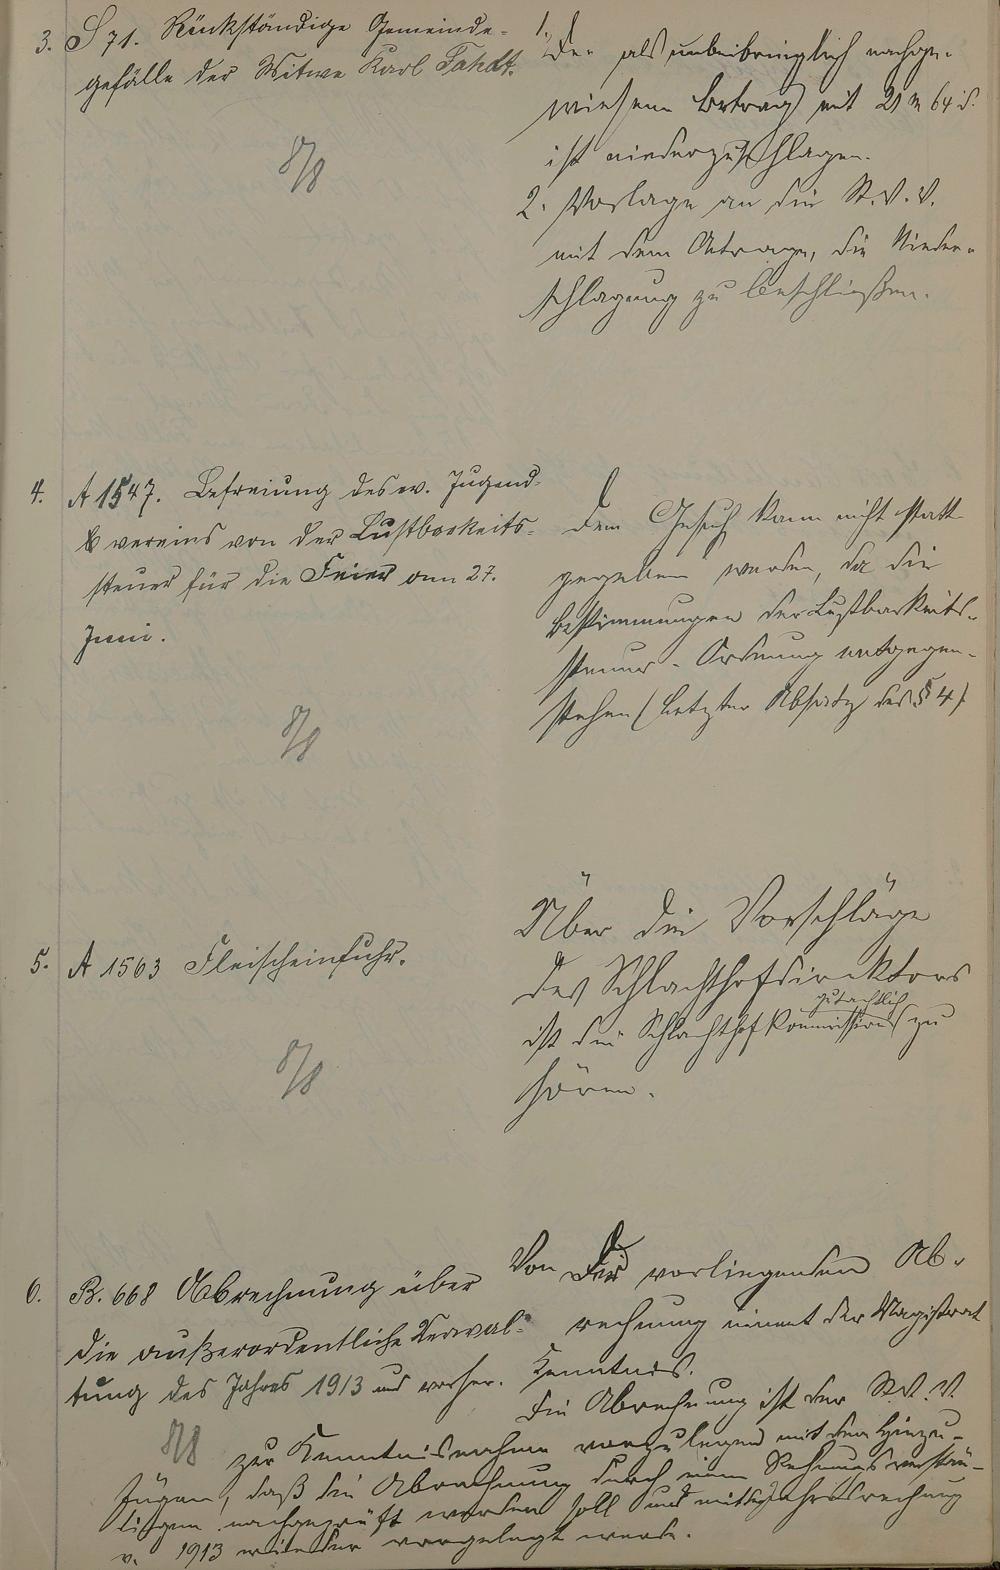 3. S 71. Rückständige Gemeinde-
gefälle der Witwe Karl Fahdt.
8/8
1. Der als unbeibringlich nachge-
wiesene Betrag mit 21 M 64 d.
ist niederzuschlagen.
2. Vorlage an die St. V. V.
mit dem Antrage, die Nieder-
schlagung zu beschließen.
4. A 1547. Befreiung des ev. Jugend-
vereins von der Lustbarkeits-
steuer für die Feier am 27.
Juni.
8/8
Dem Gesuch kann nicht statt
gegeben werden, da die
Bestimmungen der Lustbarkeits-
steuer-Ordnung entgegen-
stehen (letzter Absatz des § 4)
5. A 1563 Fleischeinfuhr.
8/8
Über die Vorschläge
des Schlachthofdirektors
ist die Schlachthofkommission gutachtlich zu
hören.
6. B. 668 Abrechnung über
die außerordentliche Verwal-
tung des Jahres 1913 und vorher.
8/8
Von der vorliegenden Ab-
rechnung nimmt der Magistrat
Kenntnis.
Die Abrechnung ist der St. V. V.
zur Kenntnisnahme vorzulegen mit dem Hinzu-
fügen, daß die Abrechnung durch einen Rechnungsverstän-
digen nachgeprüft werden soll und mit Jahresrechnung
v. 1913 wieder vorgelegt werde.